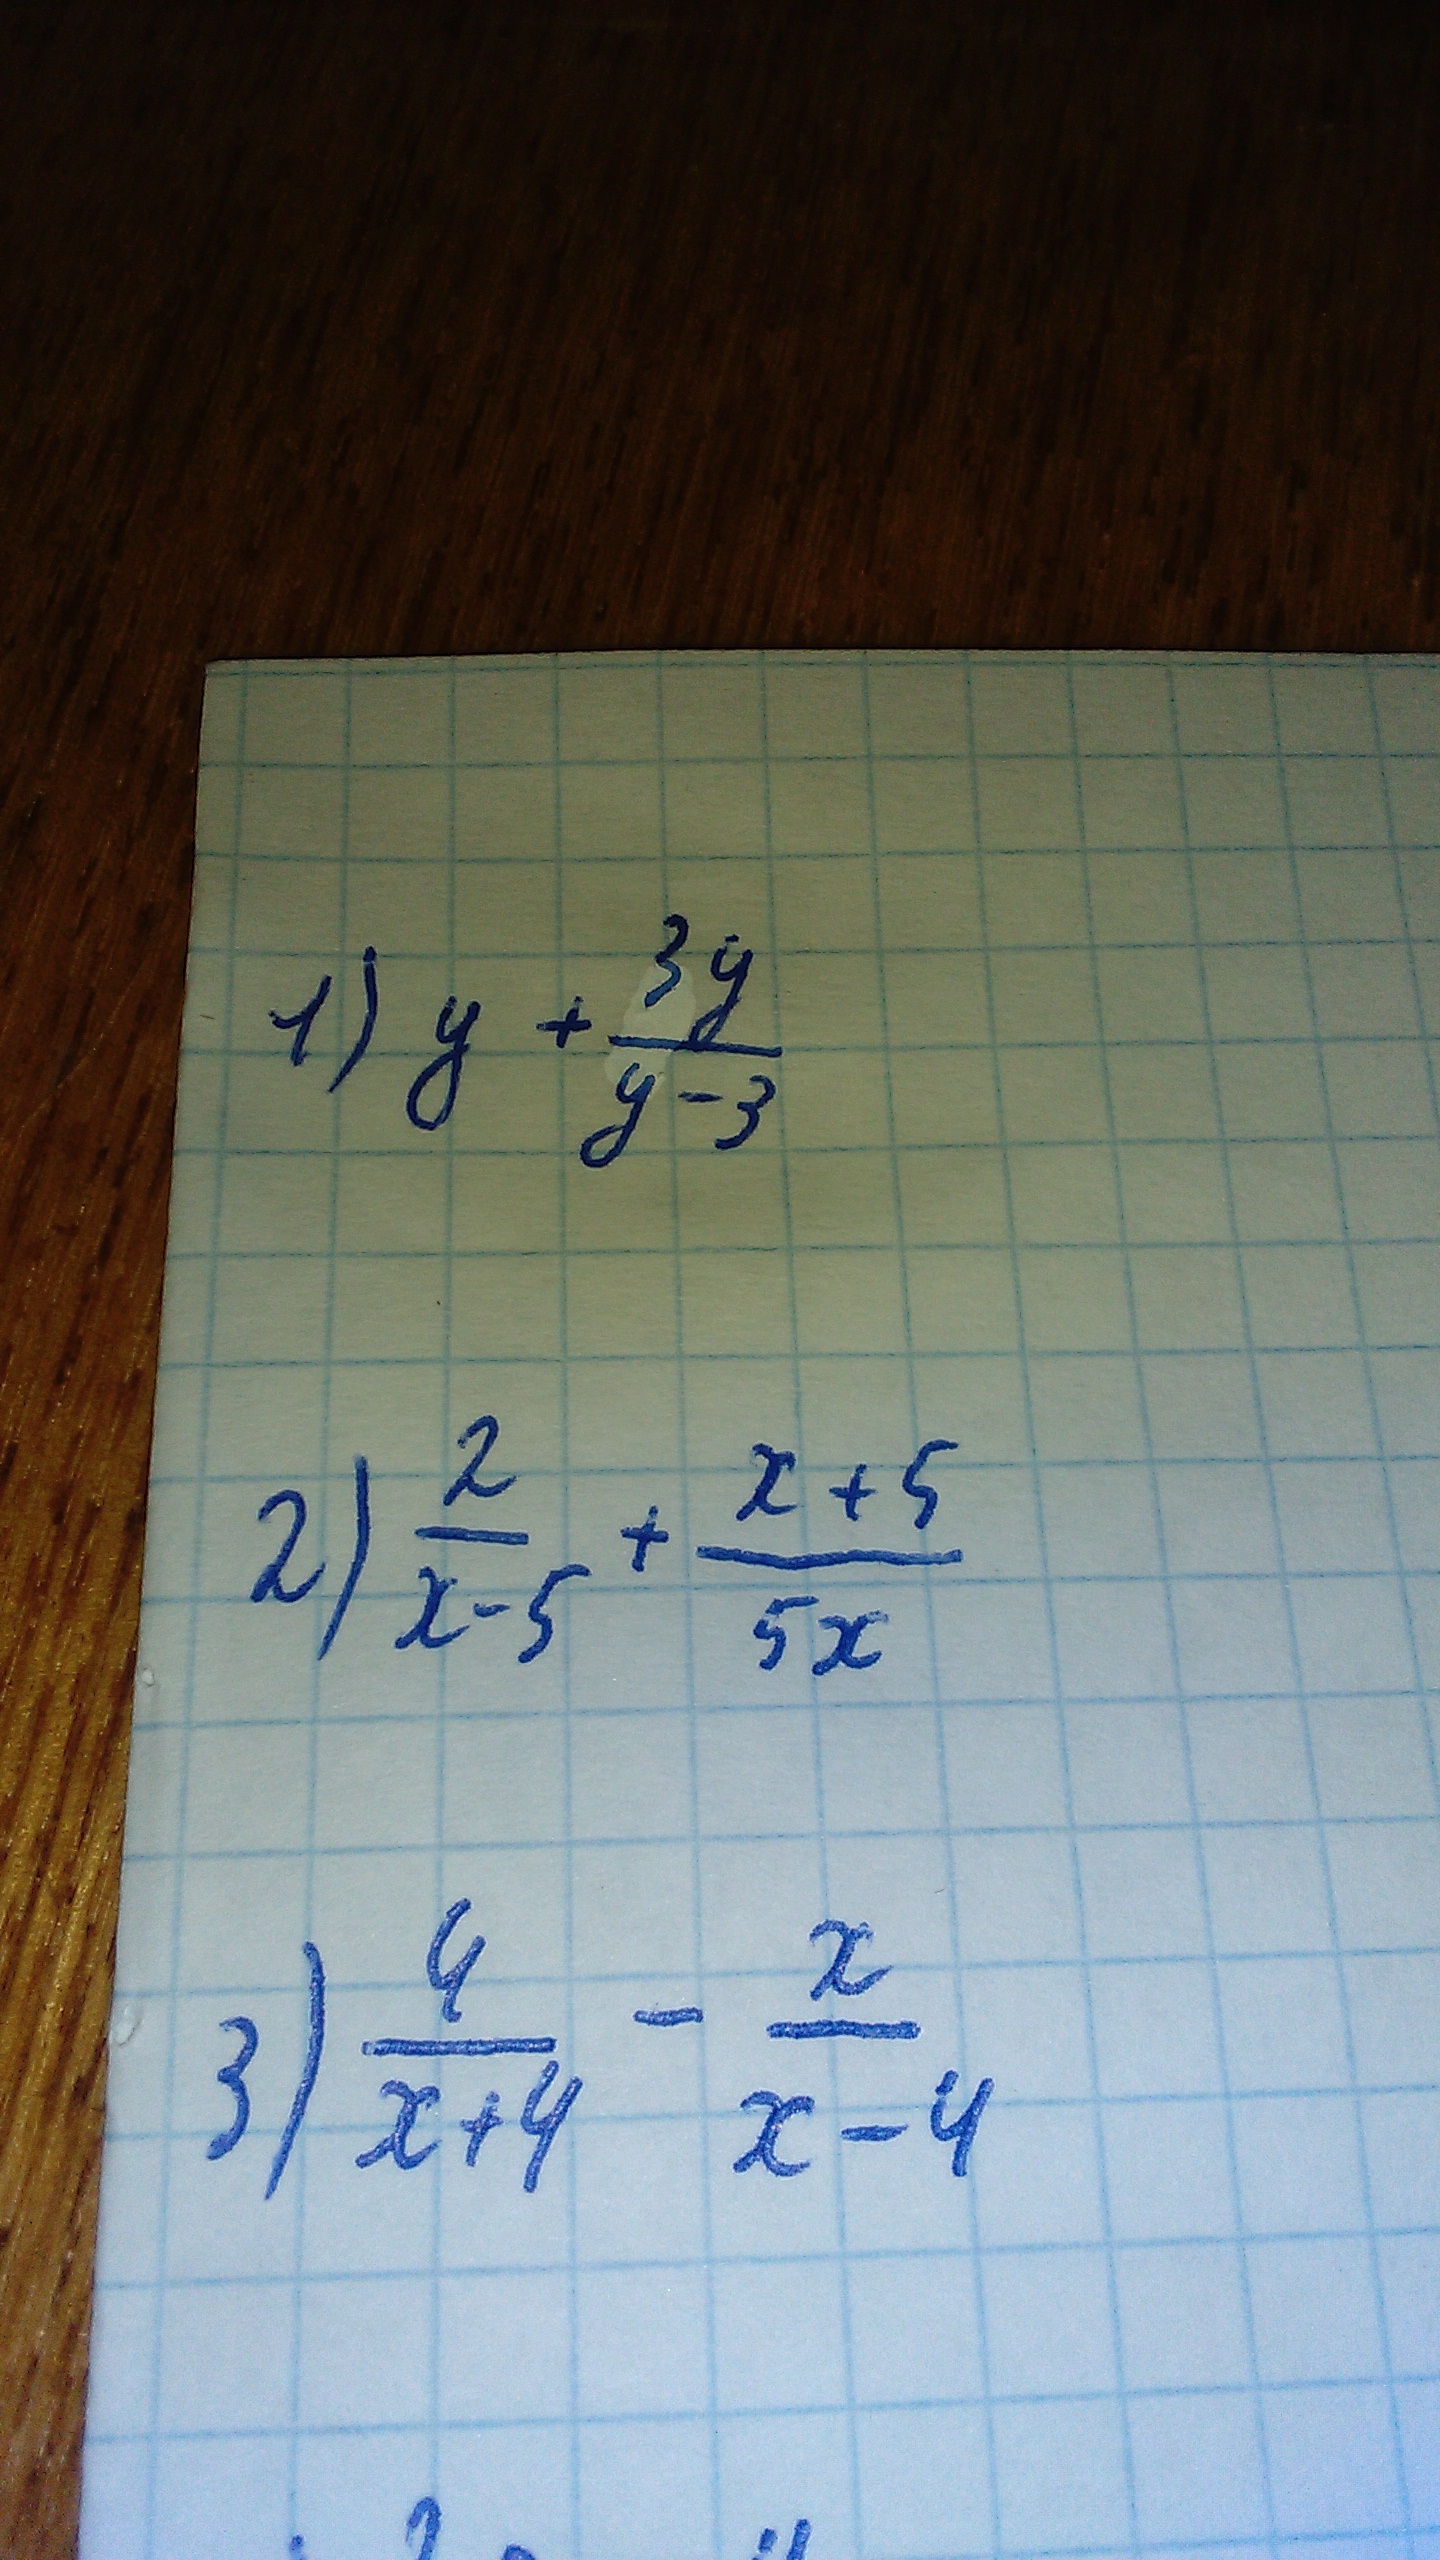 1) y + 3y/(y-3)
2) 2/(x-5) + (x+5)/5x
3) 4/(x+4) - x/(x-4)